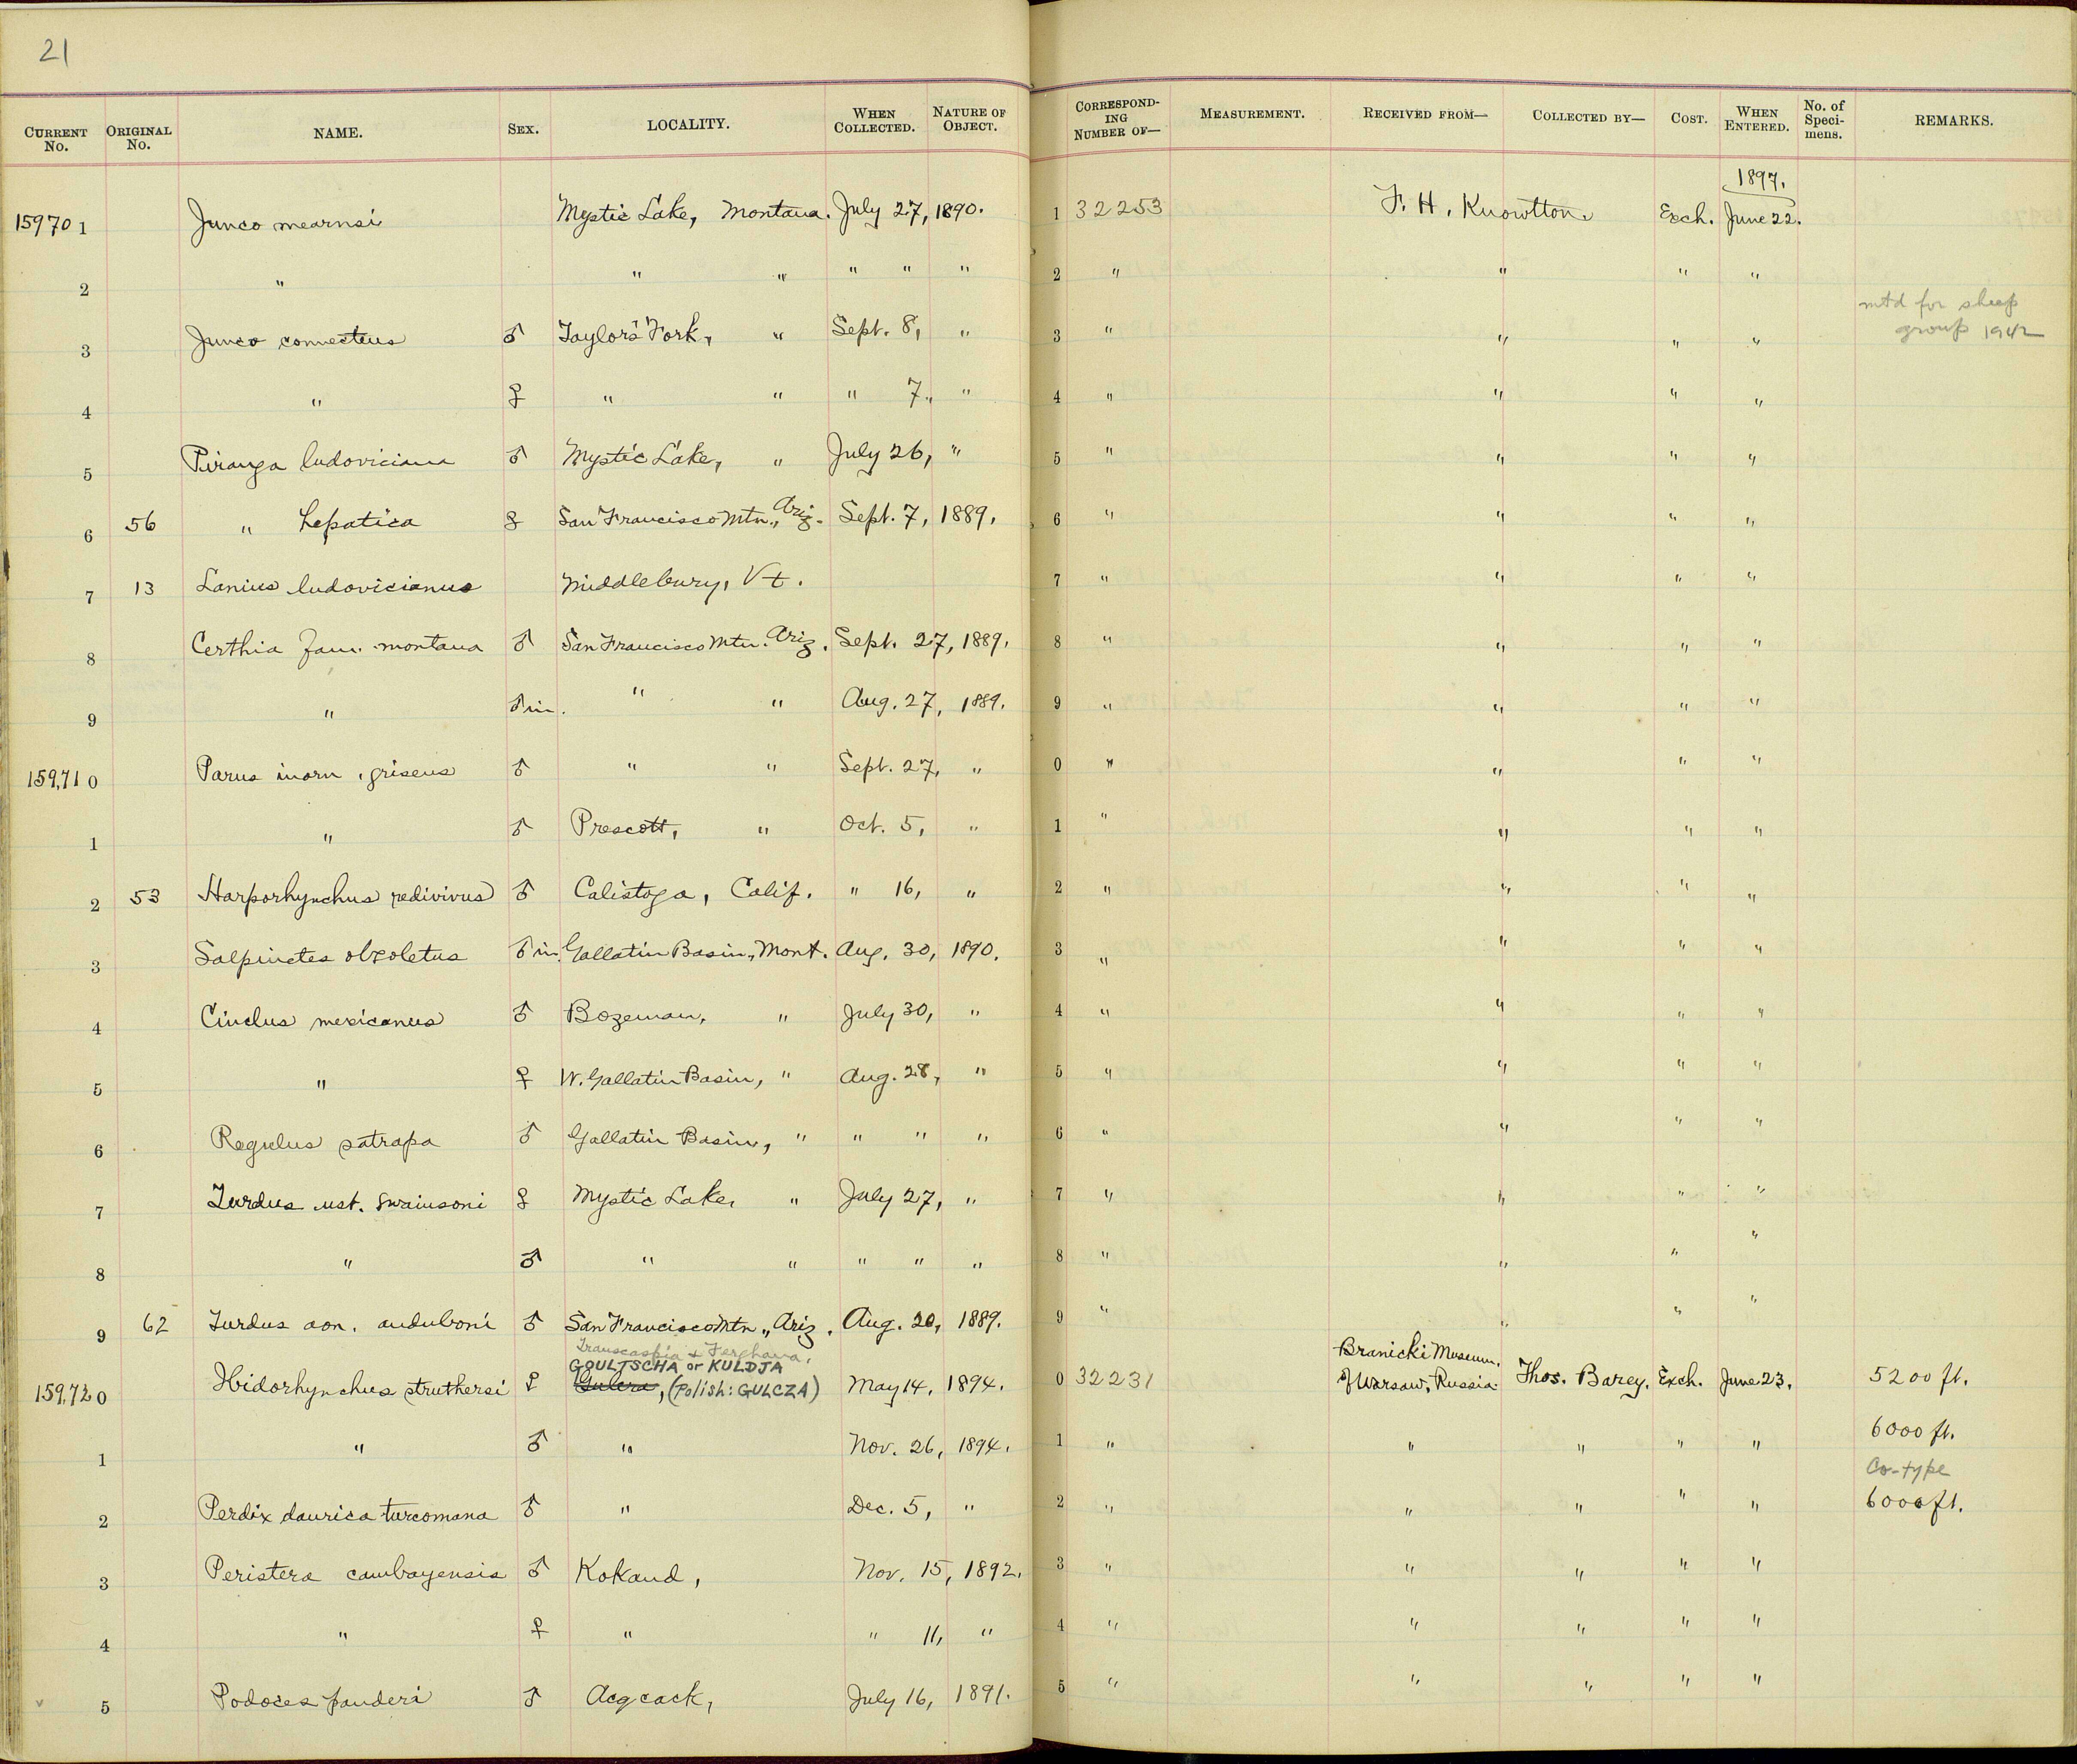 21
CURRENT No. ORIGINAL No. NAME. SEX. LOCALITY. WHEN COLLECTED. NATURE OF OBJECT. CORRESPONDING NUMBER OF— MEASUREMENT. RECEIVED FROM— COLLECTED BY— COST. WHEN ENTERED. No. of Specimens. REMARKS.
1897.
15970 1 Junco mearnsi Mystic Lake, Montana. July 27, 1890. 1 32253 F. H. Knowlton Exch. June 22.
2 " " " " " " 2 " " " "
mtd for sheep
3 Junco connectens ♂ Taylor's Fork, " Sept. 8, " 3 " " " " group 1942
4 " ♀ " " " 7, " 4 " " " "
5 Piranga ludoviciana ♂ Mystic Lake, " July 26, " 5 " " " "
6 56 " hepatica ♀ San Francisco Mtn., Ariz. Sept. 7, 1889. 6 " " " "
7 13 Lanius ludovicianus Middlebury, Vt. 7 " " " "
8 Certhia fam. montana ♂ San Francisco Mtn. Ariz. Sept. 27, 1889. 8 " " " "
9 " ♂ im. " " Aug. 27, 1889. 9 " " " "
159,71 0 Parus inorn. griseus ♂ " " Sept. 27, " 0 " " " "
1 " ♂ Prescott, " Oct. 5, " 1 " " " "
2 53 Harporhynchus redivivus ♂ Calistoga, Calif. " 16, " 2 " " " "
3 Salpinctes obsoletus ♂ im. Gallatin Basin, Mont. Aug. 30, 1890. 3 " " " "
4 Cinclus mexicanus ♂ Bozeman, " July 30, " 4 " " " "
5 " ♀ W. Gallatin Basin, " Aug. 28, " 5 " " " "
6 Regulus satrapa ♂ Gallatin Basin, " " " " 6 " " " "
7 Turdus ust. swainsoni ♀ Mystic Lake, " July 27, " 7 " " " "
8 " ♂ " " " " " 8 " " " "
9 62 Turdus aon. auduboni ♂ San Francisco Mtn., Ariz. Aug. 20, 1889. 9 " " " "
Transcaspia & Ferghana.
GOULTSCHA or KULDJA Branicki Museum,
159,72 0 Ibidorhynchus struthersi ♀ Gulcra, (Polish: GULCZA) May 14, 1894. 0 32231 of Warsaw, Russia. Thos. Barey. Exch. June 23. 5200 ft.
1 " ♂ " Nov. 26, 1894. 1 " " " " " 6000 ft.
Co-type
2 Perdix daurica turcomana ♂ " Dec. 5, " 2 " " " " " 6000 ft.
3 Peristera cambayensis ♂ Kokand, Nov. 15, 1892. 3 " " " " "
4 " ♀ " " 11, " 4 " " " " "
5 Podoces panderi ♂ Acgcack, July 16, 1891. 5 " " " " "